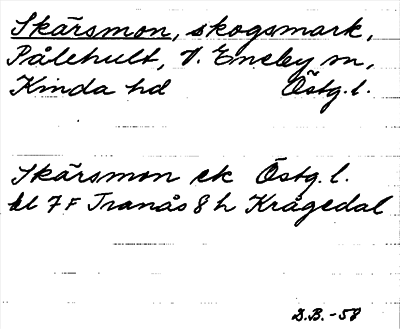 Skärsmon, skogsmark,
Pålehult, V. Eneby sn,
Kinda hd Östg. l.
Skärsmon ek Östg. l.
bl 7F Tranås 8h Krågedal
D.B. -58